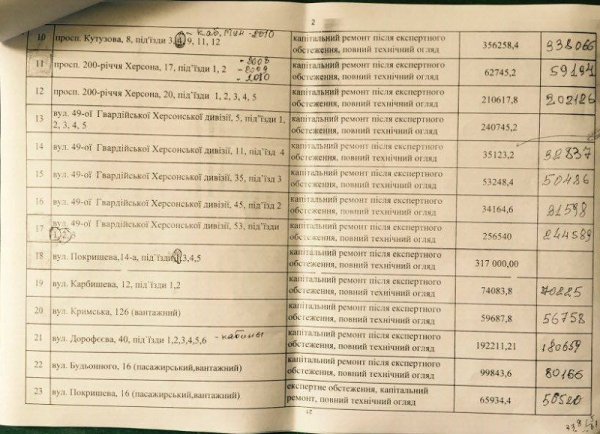 2
- каб, Мин - 2010
10 просп. Кутузова, 8, під'їзди 3,4, 9, 11, 12 капітальний ремонт після експертного обстеження, повний технічний огляд 356258,4 338066
- 2008
- 2009
- 2010
11 просп. 200-річчя Херсона, 17, під'їзди 1, 2 капітальний ремонт після експертного обстеження, повний технічний огляд 62745,2 59194
12 просп. 200-річчя Херсона, 20, під'їзди 1, 2, 3, 4, 5 капітальний ремонт після експертного обстеження, повний технічний огляд 210617,8 202126
13 вул. 49-ої Гвардійської Херсонської дивізії, 5, під'їзди 1,
2, 3, 4, 5 капітальний ремонт після експертного обстеження, повний технічний огляд 240745,2
14 вул. 49-ої Гвардійської Херсонської дивізії, 11, під'їзд 4 капітальний ремонт після експертного обстеження, повний технічний огляд 35123,2 32837
15 вул. 49-ої Гвардійської Херсонської дивізії, 35, під'їзд 3 капітальний ремонт після експертного обстеження, повний технічний огляд 53248,4 50486
16 вул. 49-ої Гвардійської Херсонської дивізії, 45, під'їзд 2 капітальний ремонт після експертного обстеження, повний технічний огляд 34164,6 31598
17 вул. 49-ої Гвардійської Херсонської дивізії, 53, під'їзди
капітальний ремонт після експертного обстеження, повний технічний огляд 256540 244589
18 вул. Покришева,14-а, під'їзди 1,3,4,5 капітальний ремонт після експертного обстеження, повний технічний огляд 317 000,00
19 вул. Карбишева, 12, під'їзди 1,2 капітальний ремонт після експертного обстеження, повний технічний огляд 74083,8 70825
20 вул. Кримська, 126 (вантажний) капітальний ремонт після експертного обстеження, повний технічний огляд 59687,8 56758
21 вул. Дорофєєва, 40, під їзди 1,2,3,4,5,6 - кабины капітальний ремонт після експертного обстеження, повний технічний огляд 192211,21 180659
22 вул. Будьонного, 16 (пасажирський,вантажний) капітальний ремонт після експертного обстеження, повний технічний огляд 99843,6 80166
23 вул. Покришева, 16 (пасажирський,вантажний) експертне обстеження, капітальний ремонт, повний технічний огляд 65934,4 58520